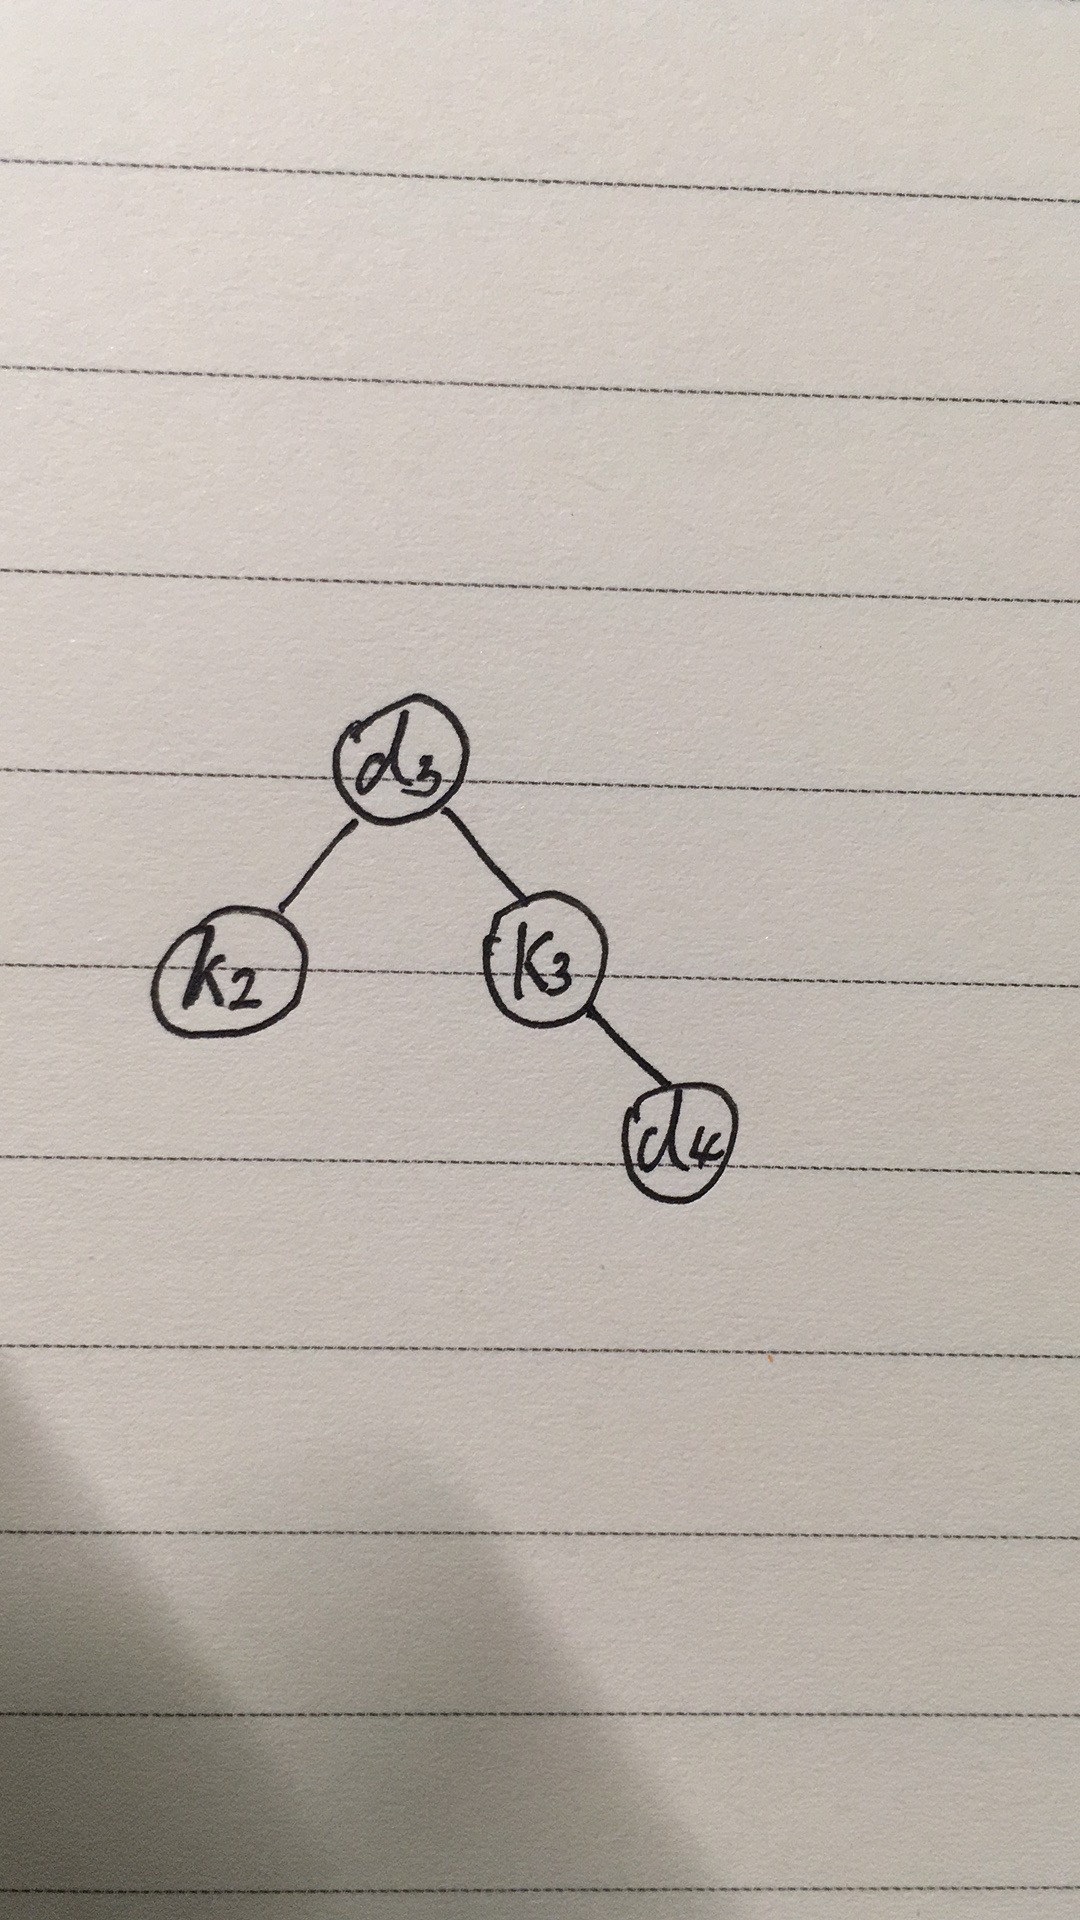 d3
k2 k3
d4